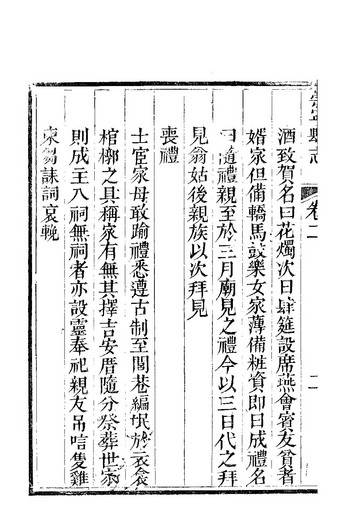 縣志 卷二 二
酒致賀名曰花燭次日肆筵設席燕會賓友貧者
婿家但備轎馬鼓樂女家薄備粧資即日成禮名
曰隨禮親至於三月廟見之禮今以三日代之拜
見翁姑後親族以次拜見
喪禮
士宦家毋敢踰禮悉遵古制至閭巷編氓於衣衾
棺槨之具稱家有無其擇吉安厝隨分祭葬世家
則成主入祠無祠者亦設靈奉祀親友吊唁隻雞
束芻誄詞哀輓